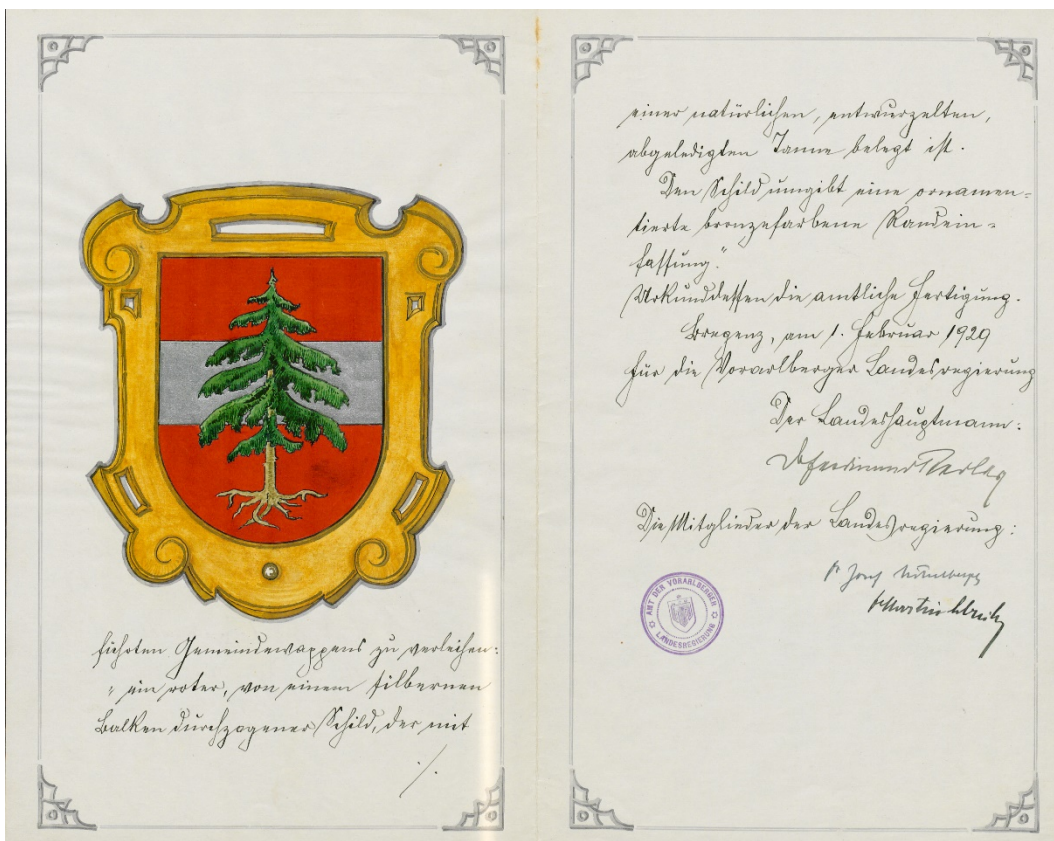 führten Gemeindewappens zu verleihen:
„ein roter, von einem silbernen
Balken durchzogener Schild, der mit
./.
einer natürlichen, entwurzelten,
abgeledigten Tanne belegt ist.
Den Schild umgibt eine ornamen=
tierte bronzefarbene Randein=
fassung.“
Urkunddessen die amtliche Fertigung.
Bregenz, am 1. Februar 1929
Für die Vorarlberger Landesregierung
Der Landeshauptmann:
Die Mitglieder der Landesregierung:
AMT DER VORARLBERGER
LANDESREGIERUNG